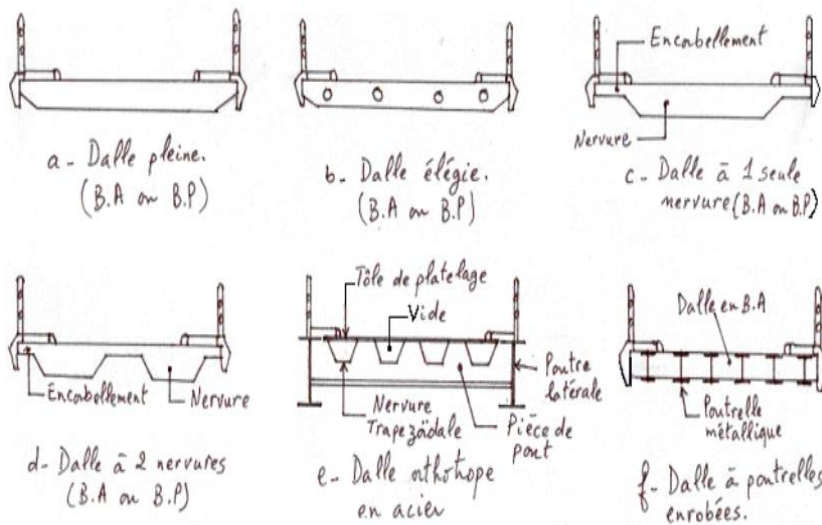 a - Dalle pleine.
(B.A ou B.P)
b - Dalle élégie.
(B.A ou B.P)
Encorbellement
Nervure
c - Dalle à 1 seule
nervure (B.A ou B.P)
Encorbellement
Nervure
d - Dalle à 2 nervures
(B.A ou B.P)
Tôle de platelage
Vide
Poutre
latérale
Nervure
Trapezoïdale
Pièce de
pont
e - Dalle orthotrope
en acier
Dalle en B.A
Poutrelle
métallique
f - Dalle à poutrelles
enrobées.